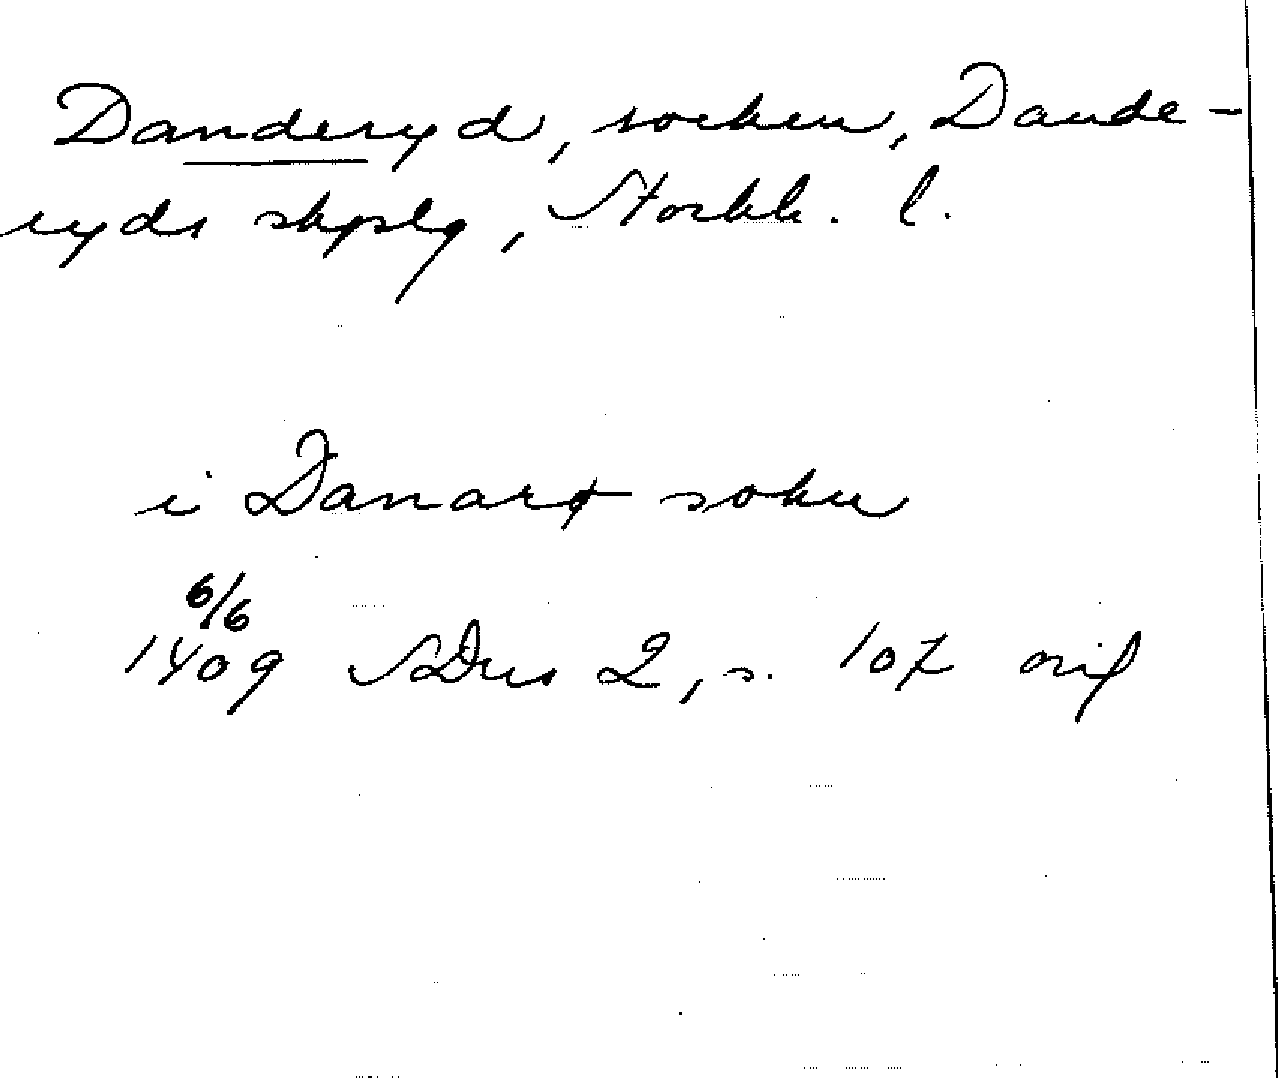 Danderyd, socken, Dande-
ryds skpslg, Stockh. l.
i Danarø sokn
6/6
1409 SDns 2, s. 107 orig